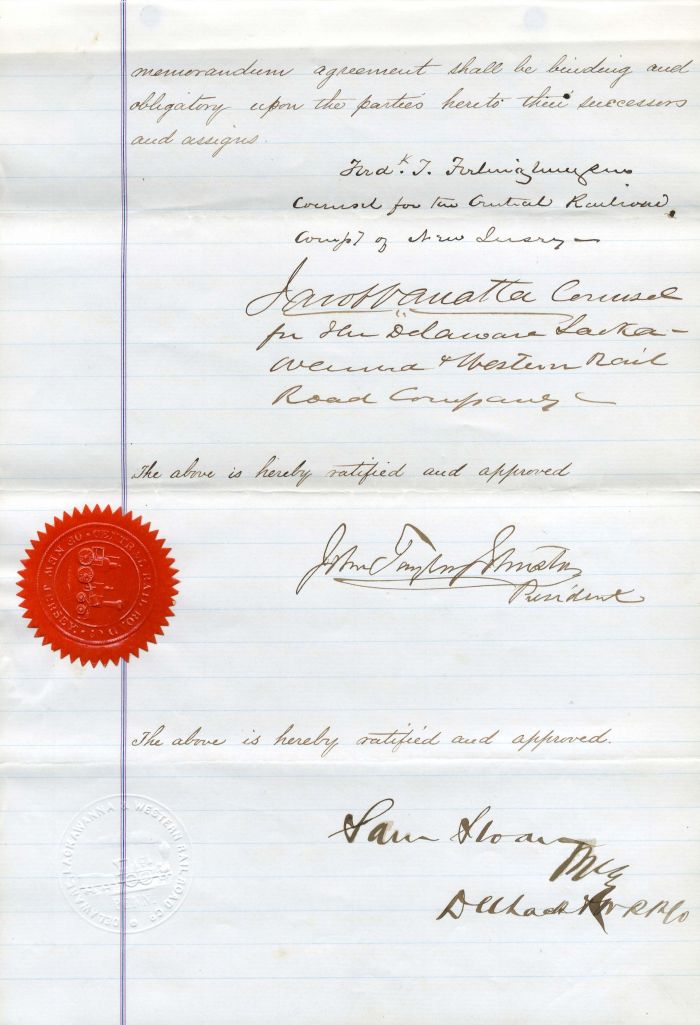 memorandum agreement shall be binding and
obligatory upon the parties hereto their successors
and assigns.
Fredk. T. Frelinghuysen
Counsel for the Central Railroad
Compy of New Jersey
Jacob Vanatta Counsel
for the Delaware Lacka-
wanna & Western Rail
Road Company
The above is hereby ratified and approved
John Taylor Johnston
President
CENTRAL RAIL RO. CO. OF NEW JERSEY.
The above is hereby ratified and approved.
Sam Sloan
D L & W R R Co
DELAWARE, LACKAWANNA & WESTERN RAILROAD CO.